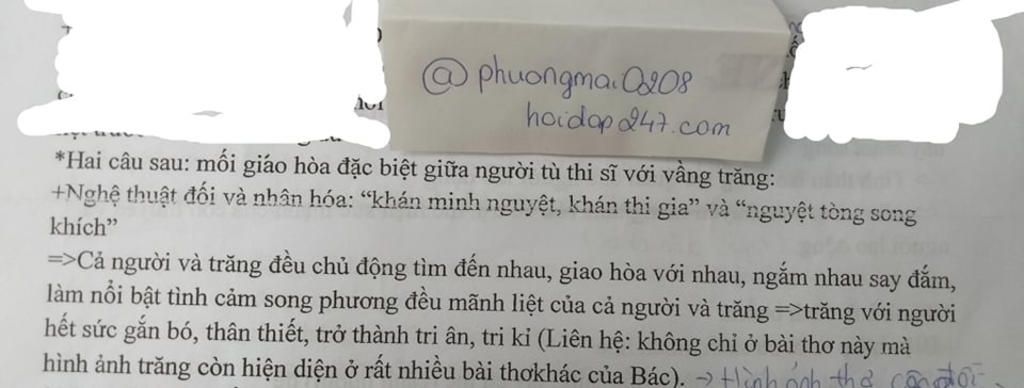 @ phuongmai0208
hoidap247.com
*Hai câu sau: mối giáo hòa đặc biệt giữa người tù thi sĩ với vầng trăng:
+Nghệ thuật đối và nhân hóa: “khán minh nguyệt, khán thi gia” và “nguyệt tòng song
khích”
=>Cả người và trăng đều chủ động tìm đến nhau, giao hòa với nhau, ngắm nhau say đắm,
làm nổi bật tình cảm song phương đều mãnh liệt của cả người và trăng =>trăng với người
hết sức gắn bó, thân thiết, trở thành tri ân, tri kỉ (Liên hệ: không chỉ ở bài thơ này mà
hình ảnh trăng còn hiện diện ở rất nhiều bài thơkhác của Bác). → Hình ảnh thơ cân đối